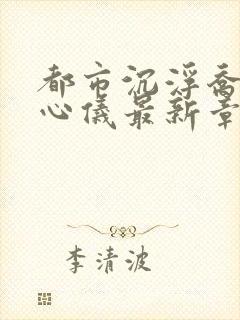 都市沉浮乔
心仪最新章
李清波